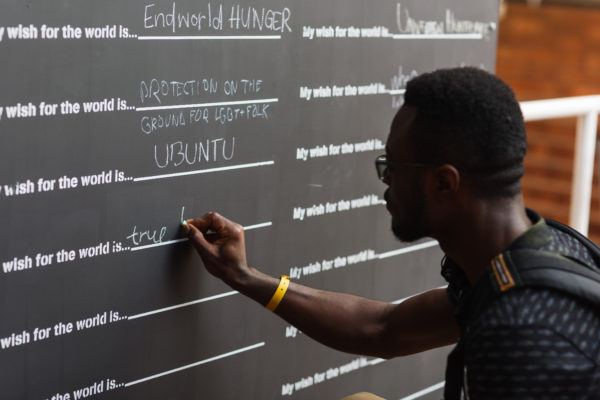 My wish for the world is... Endworld HUNGER
My wish for the world is... PROTECTION ON THE
GROUND FOR LGBT+ FOLK
My wish for the world is... UBUNTU
wish for the world is... true
wish for the world is...
My wish for the world is...
My wish for the world is...
My wish for the world is...
My wish for the world is...
My wish for the world is...
My wish for the world is...
My wish for the world is...
My wish for the world is...